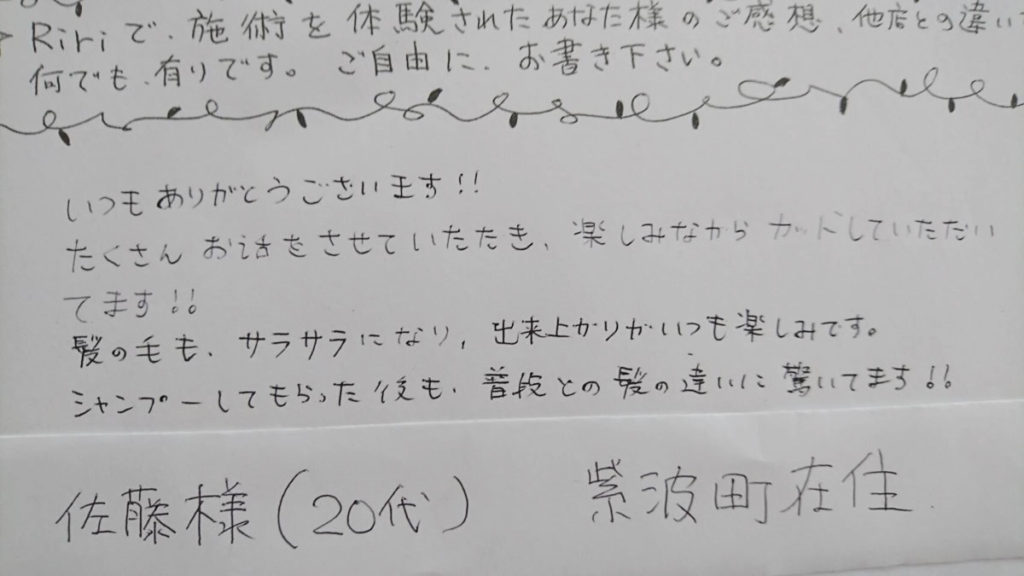 Ririで、施術を体験されたあなた様のご感想、他店との違い
何でも、有りです。ご自由に、お書き下さい。
いつもありがとうございます!!
たくさんお話をさせていただき、楽しみながらカットしていただい
てます!!
髪の毛も、サラサラになり、出来上がりがいつも楽しみです。
シャンプーしてもらった後も、普段との髪の違いに驚いてます!!
佐藤様(20代) 紫波町在住